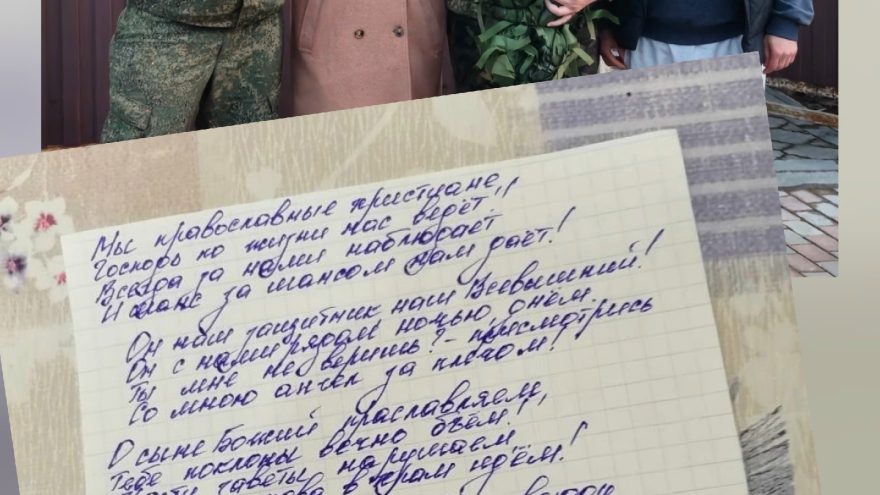 Мы православные християне,
Господь по жизни нас ведёт,
Всегда за нами наблюдает
И шанс за шансом нам даёт!
Он нам защитник наш Всевышний!
Он с нами рядом ночью, днём.
Ты мне не веришь? - присмотрись
Со мною ангел за плечом!
О сыне Божий прославляем,
Тебе поклоны вечно бъём!
заветы нарушаем
в храм идём!